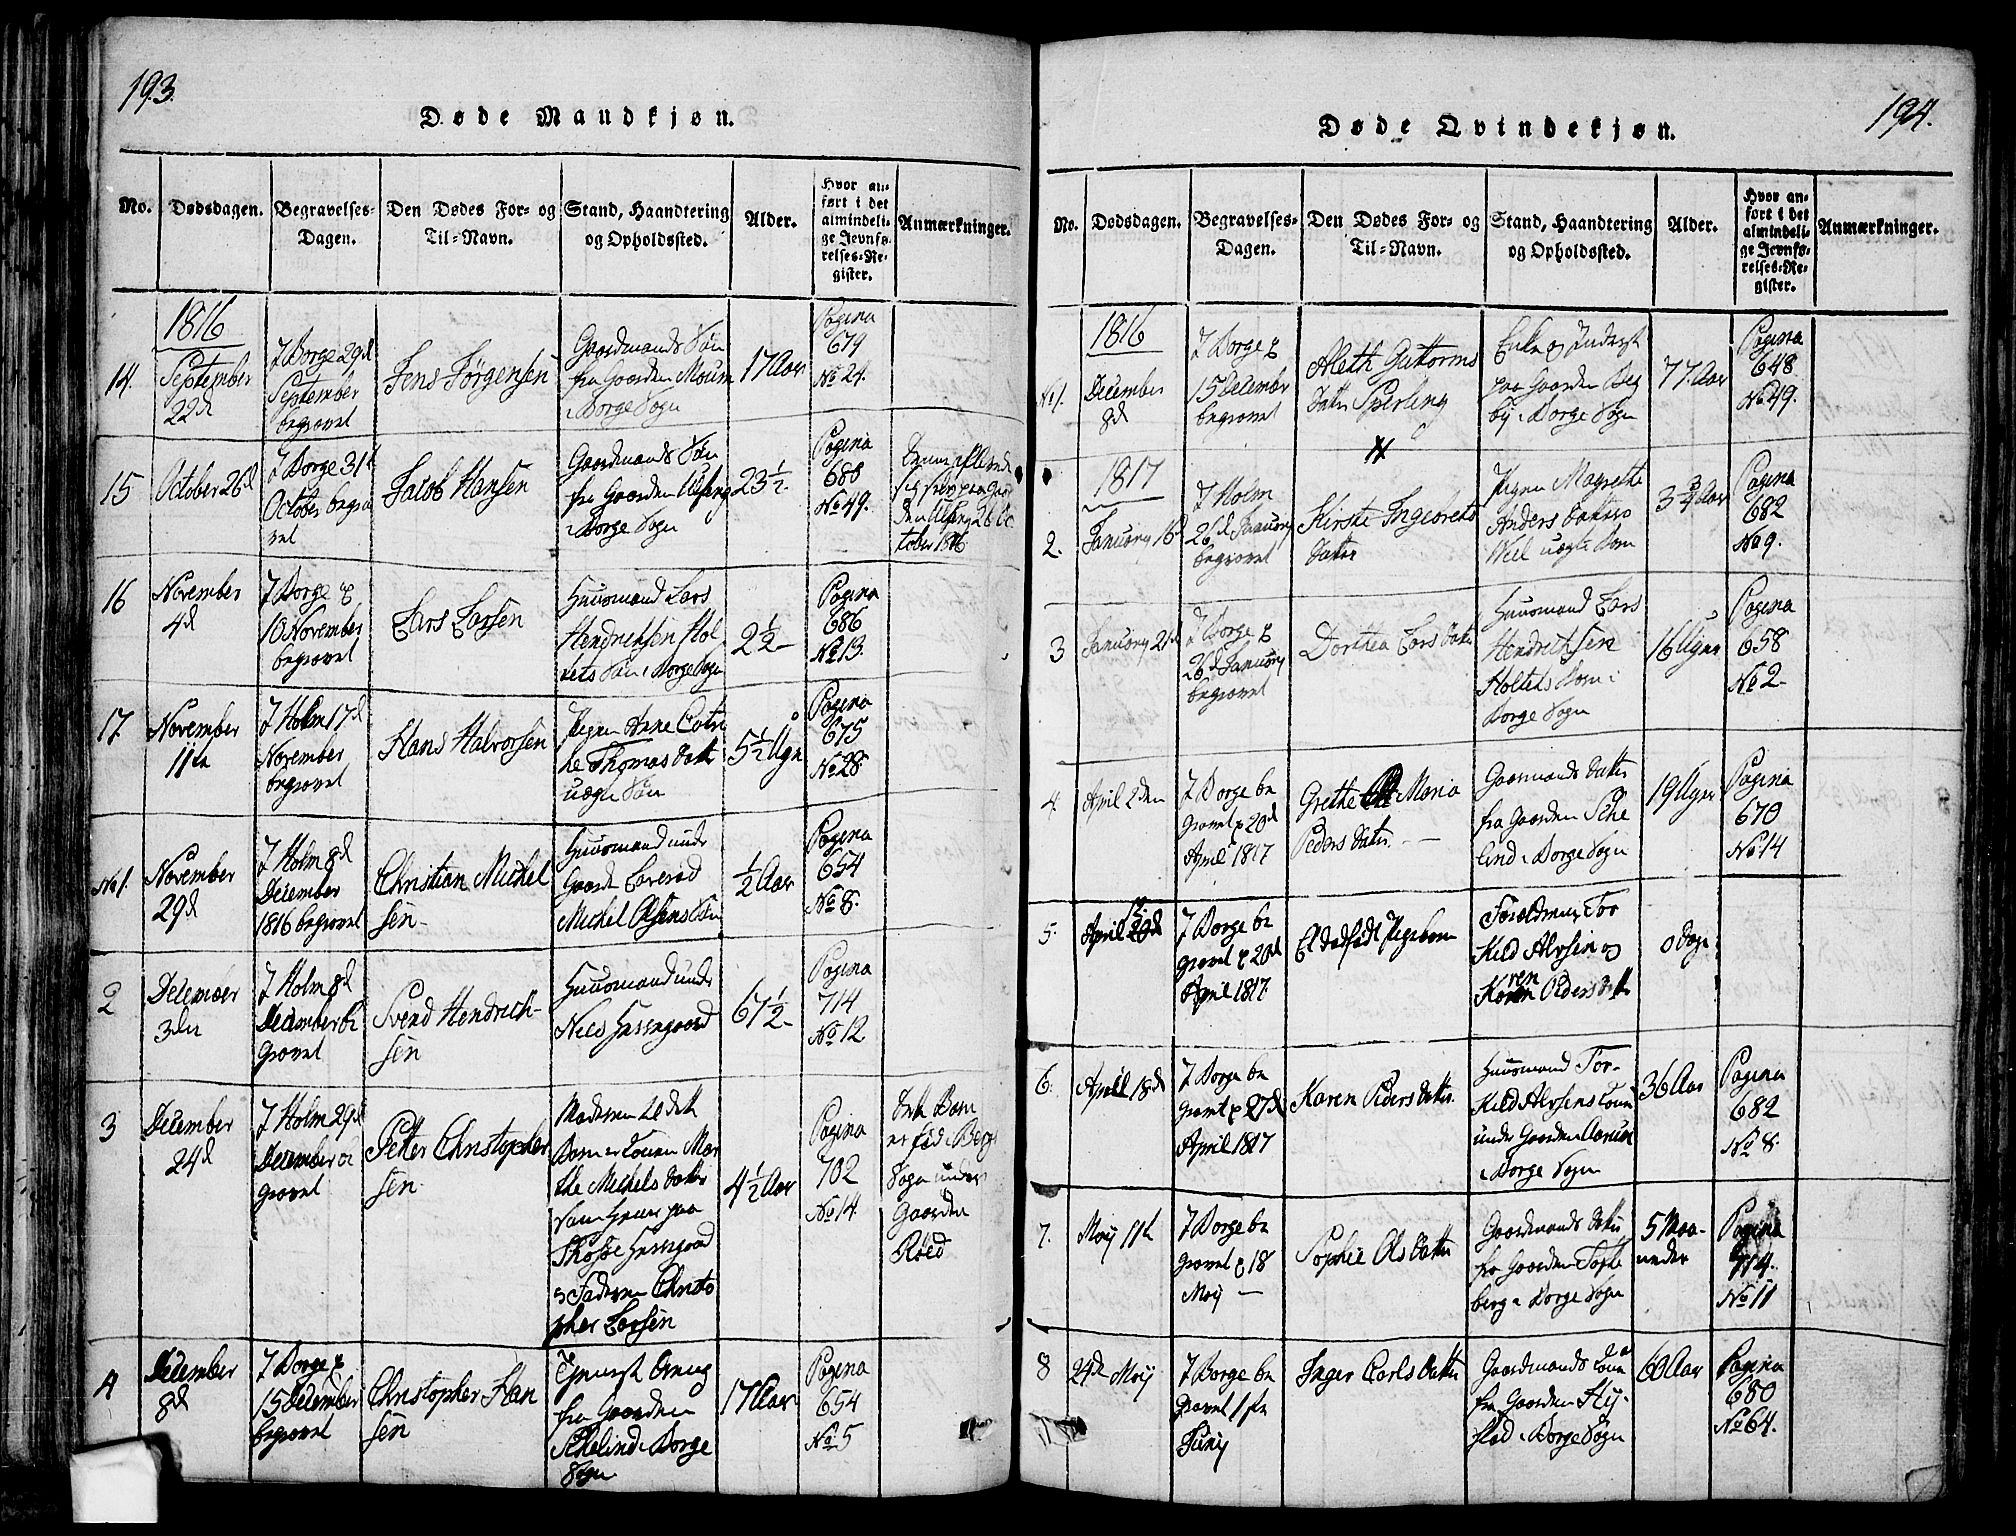 193.
Døde Mandkjøn.
No.
Dødsdagen.
Begravelses-
Dagen.
Den Dødes For- og
Til-Navn.
Stand, Haandtering
og Opholdssted.
Alder.
Hvor an-
ført i det
almindeli-
ge Jevnfø-
relses-Re-
gister.
Anmærkninger.
1816
14.
September
22d
I Borge 29d
September
begravet
Jens Jørgensen
Gaardmands Søn
fra Gaarden Moum
i Borge Sogn
17 Aar
Pagina
679
No 24.
15
October 26d
I Borge 31t
October begra
vet
Jacob Hansen
Gaardmands Søn
fra Gaarden Ulfeng
i Borge Sogn
23½
Pagina
688
No 49.
den Ulfeng 26 Oc
tober 1816.
16
November
4d
I Borge
10 November
begravet
Lars Larsen
Huusmand Lars
Hendrichsen Hol
tets Søn i Borge Sogn
2½
Pagina
686
No 13.
17
November
11te
I Holm 17d
November
begravet
Hans Halvorsen
Pigen Anne Catri
ne Thomas Datt
uægte Søn
5½ Uge
Pagina
675
No 28.
No 1.
November
29d
I Holm 8d
December
1816 begravet
Christian Michel
sen
Huusmand under
Gaard
Michel Olsens Søn
½ Aar
Pagina
654
No 8.
2
December
3die
I Holm 8d
December be
gravet
Svend Hendrich-
sen
Huusmand under
Nees Hassegaard
67½
Pagina
714
No 12
3
December
24d
I Holm 29d
December be
gravet
Petter Christopher
sen
Moderen til dette
Barn er Konen Mar
the Michels Datter
som tjener paa
Hassegaard
Faderen Christo
pher Larsen
4½ Aar
Pagina
702
No 14.
Dette Barn
er fød i Berg
Sogn under
Gaarden
Røed
4
December
8d
I Borge
15 December
begravet
Christopher Han
sen
Tjeneste Dreng
fra Gaarden
Schelin i Borge
Sogn
17 Aar
Pagina
654
No 5
194.
Døde Qvindekjøn.
No.
Dødsdagen.
Begravelses-
Dagen.
Den Dødes For- og
Til-Navn.
Stand, Haandtering
og Opholdssted.
Alder.
Hvor an-
ført i det
almindeli-
ge Jevnfø-
relses-Re-
gister.
Anmærkninger.
1816
No 1.
December
8d
I Borge
15 December
begravet
Aleth Guttorms
Datter Sperling
Enke og Inderst
paa Gaarden Beg
by i Borge Sogn
77 Aar
Pagina
648.
No 49.
1817
2.
January 16d
I Holm
26d January
begravet
Kirste Ingebrets
Datter
Pigen Magrethe
Anders Datters
uægte Barn
3¾ Aar
Pagina
682
No 9.
3
January 21d
I Borge
26d January
begravet
Dorthea Lars Datter
Huusmand Lars
Hendrichsen
Holtets Barn i
Borge Sogn
16 Uger
Pagina
658
No 2
4.
April 2den
I Borge be
gravet 20d
April 1817
Grethe Maria
Peders Datter
Gaarmands Datter
fra Gaarden Sche
lin i Borge Sogn
19 Uger
Pagina
670
No 14
5.
April
I Borge be
gravet 20d
April 1817.
Et dødfødt Pigebarn
Forældrene Tor
Kild Alvsen og
Karen Peders Datt
0 Dage
6.
April 18d
I Borge be
gravet 27d
April 1817
Karen Peders Datter
Huusmand Tor-
Kild Alvsens Kone
under Gaarden
i Borge Sogn
36 Aar
Pagina
682
No 8.
7.
Maij 11te
I Borge be
gravet 18
Maij
Sophie Ols Datter
Gaardmands Datter
fra Gaarden Tofte
berg i Borge Sogn
5 Maa-
neder
Pagina
714.
No 11
8
24d Maij
I Borge be
gravet 1ste
Junij
Inger Carls Datter
Gaardmands Kone
fra Gaarden Hy-
stad i Borge Sogn
60 Aar
Pagina
680
No 64.